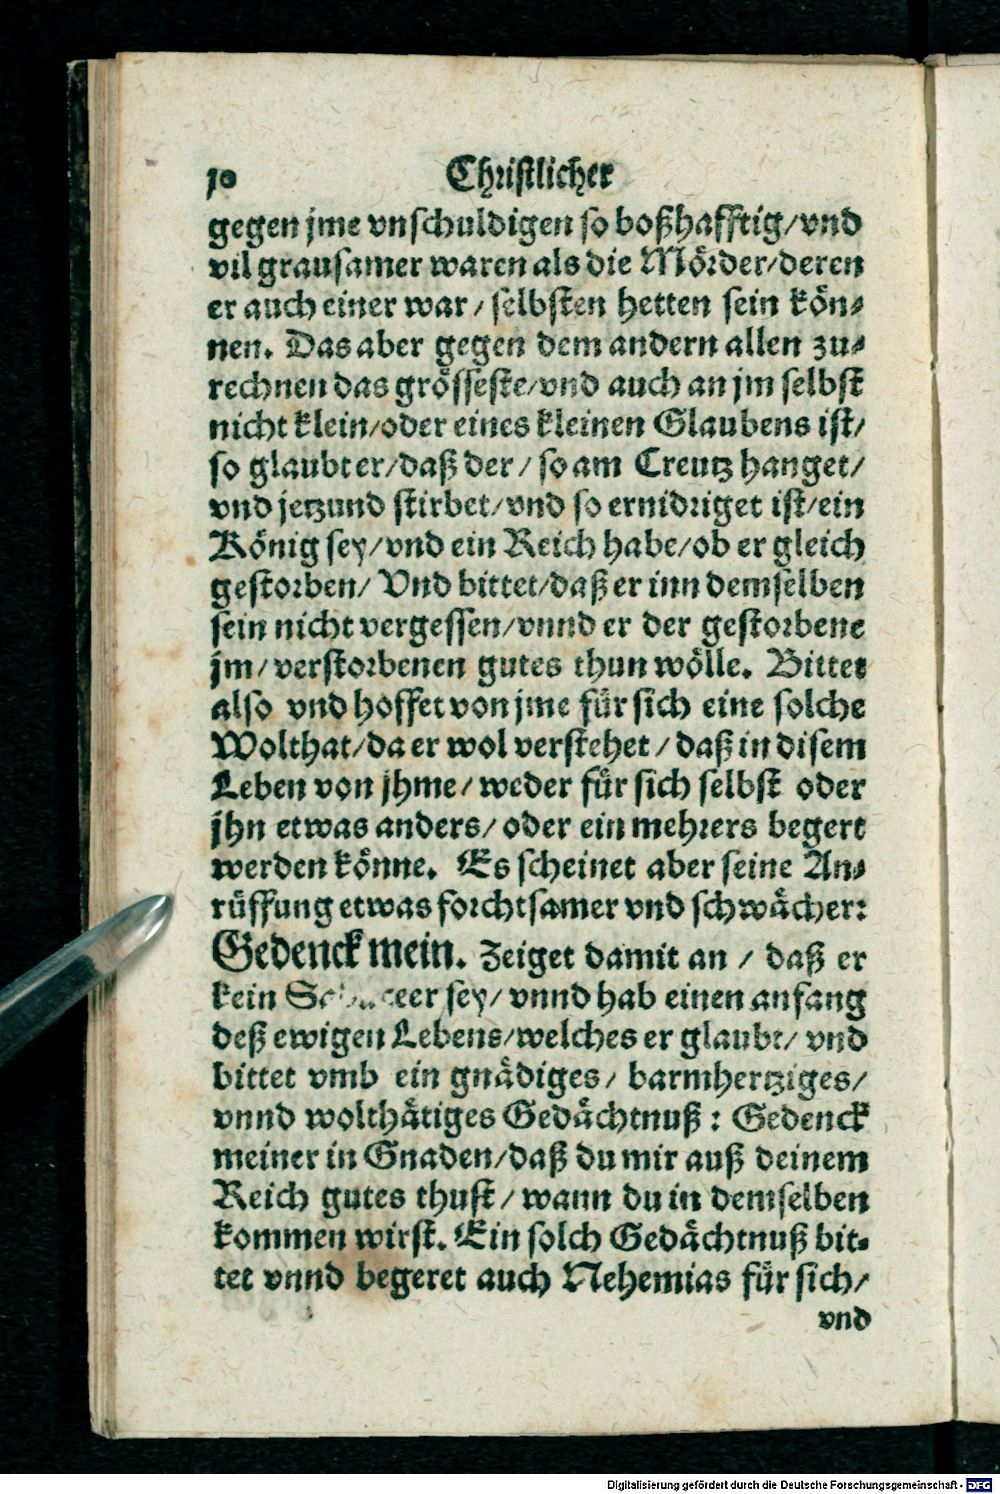 10 Christlicher
gegen jme vnschuldigen so boßhafftig/vnd
vil grausamer waren als die Mörder/deren
er auch einer war/ selbsten hetten sein kön⸗
nen. Das aber gegen dem andern allen zu⸗
rechnen das grösseste/vnd auch an jm selbst
nicht klein/oder eines kleinen Glaubens ist/
so glaubt er/daß der/ so am Creutz hanget/
vnd jetzund stirbet/vnd so ernidriget ist/ein
König sey/vnd ein Reich habe/ob er gleich
gestorben/ Vnd bittet/daß er inn demselben
sein nicht vergessen/vnnd er der gestorbene
jm/verstorbenen gutes thun wölle. Bittet
also vnd hoffet von jme für sich eine solche
Wolthat/da er wol verstehet/ daß in disem
Leben von jhme/ weder für sich selbst oder
jhn etwas anders/ oder ein mehrers begert
werden könne. Es scheinet aber seine An⸗
rüffung etwas forchtsamer vnd schwächer:
Gedenck mein. Zeiget damit an/ daß er
kein sey/ vnnd hab einen anfang
deß ewigen Lebens/welches er glaubt/ vnd
bittet vmb ein gnädiges/ barmhertziges/
vnnd wolthätiges Gedächtnuß: Gedenck
meiner in Gnaden/daß du mir auß deinem
Reich gutes thust/ wann du in demselben
kommen wirst. Ein solch Gedächtnuß bit⸗
tet vnnd begeret auch Nehemias für sich/
vnd
Digitalisierung gefördert durch die Deutsche Forschungsgemeinschaft - DFG